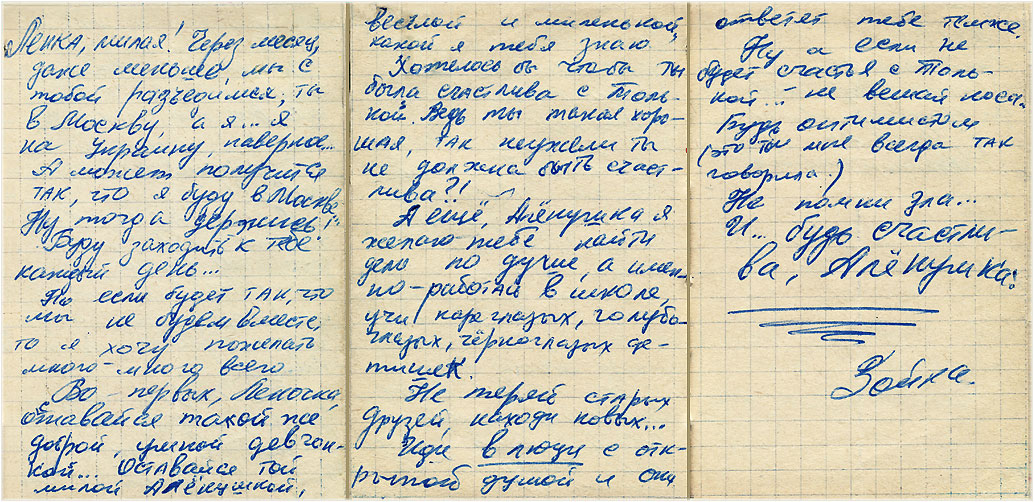 Ленка, милая! Через месяц,
даже меньше, мы с
тобой разъедимся, ты
в Москву, а я... я
на Украину, наверное...
А может получится
так, что я буду в Москве
Ну тогда держись!..
Буду заходить к тебе
каждый день...
Но если будет так, что
мы не будем вместе,
то я хочу пожелать
много-много всего
Во первых, Леночка,
оставайся такой же
доброй, умной девчон-
кой... Оставайся той
милой Алёнушкой,
весёлой и миленькой,
какой я тебя знаю
Хотелось бы чтобы ты
была счастлива с Толь-
кой. Ведь ты такая хоро-
шая, так неужели ты
не должна быть счаст-
лива?!
А ещё, Алёнушка я
желаю тебе найти
дело по душе, а имен.
по-работай в школе,
учи кареглазых, голубо-
глазых, черноглазых де-
тишек.
Не теряй старых
друзей, находи новых...
Иди в люди с отк-
рытой душой и они
ответят тебе темже.
Ну а если не
будет счастья с Толь-
кой... не вешай носа.
Будь оптимистом
(это ты мне всегда так
говорила.)
Не помни зла...
И... будь счастли-
ва, Алёнушка!
Зойка.